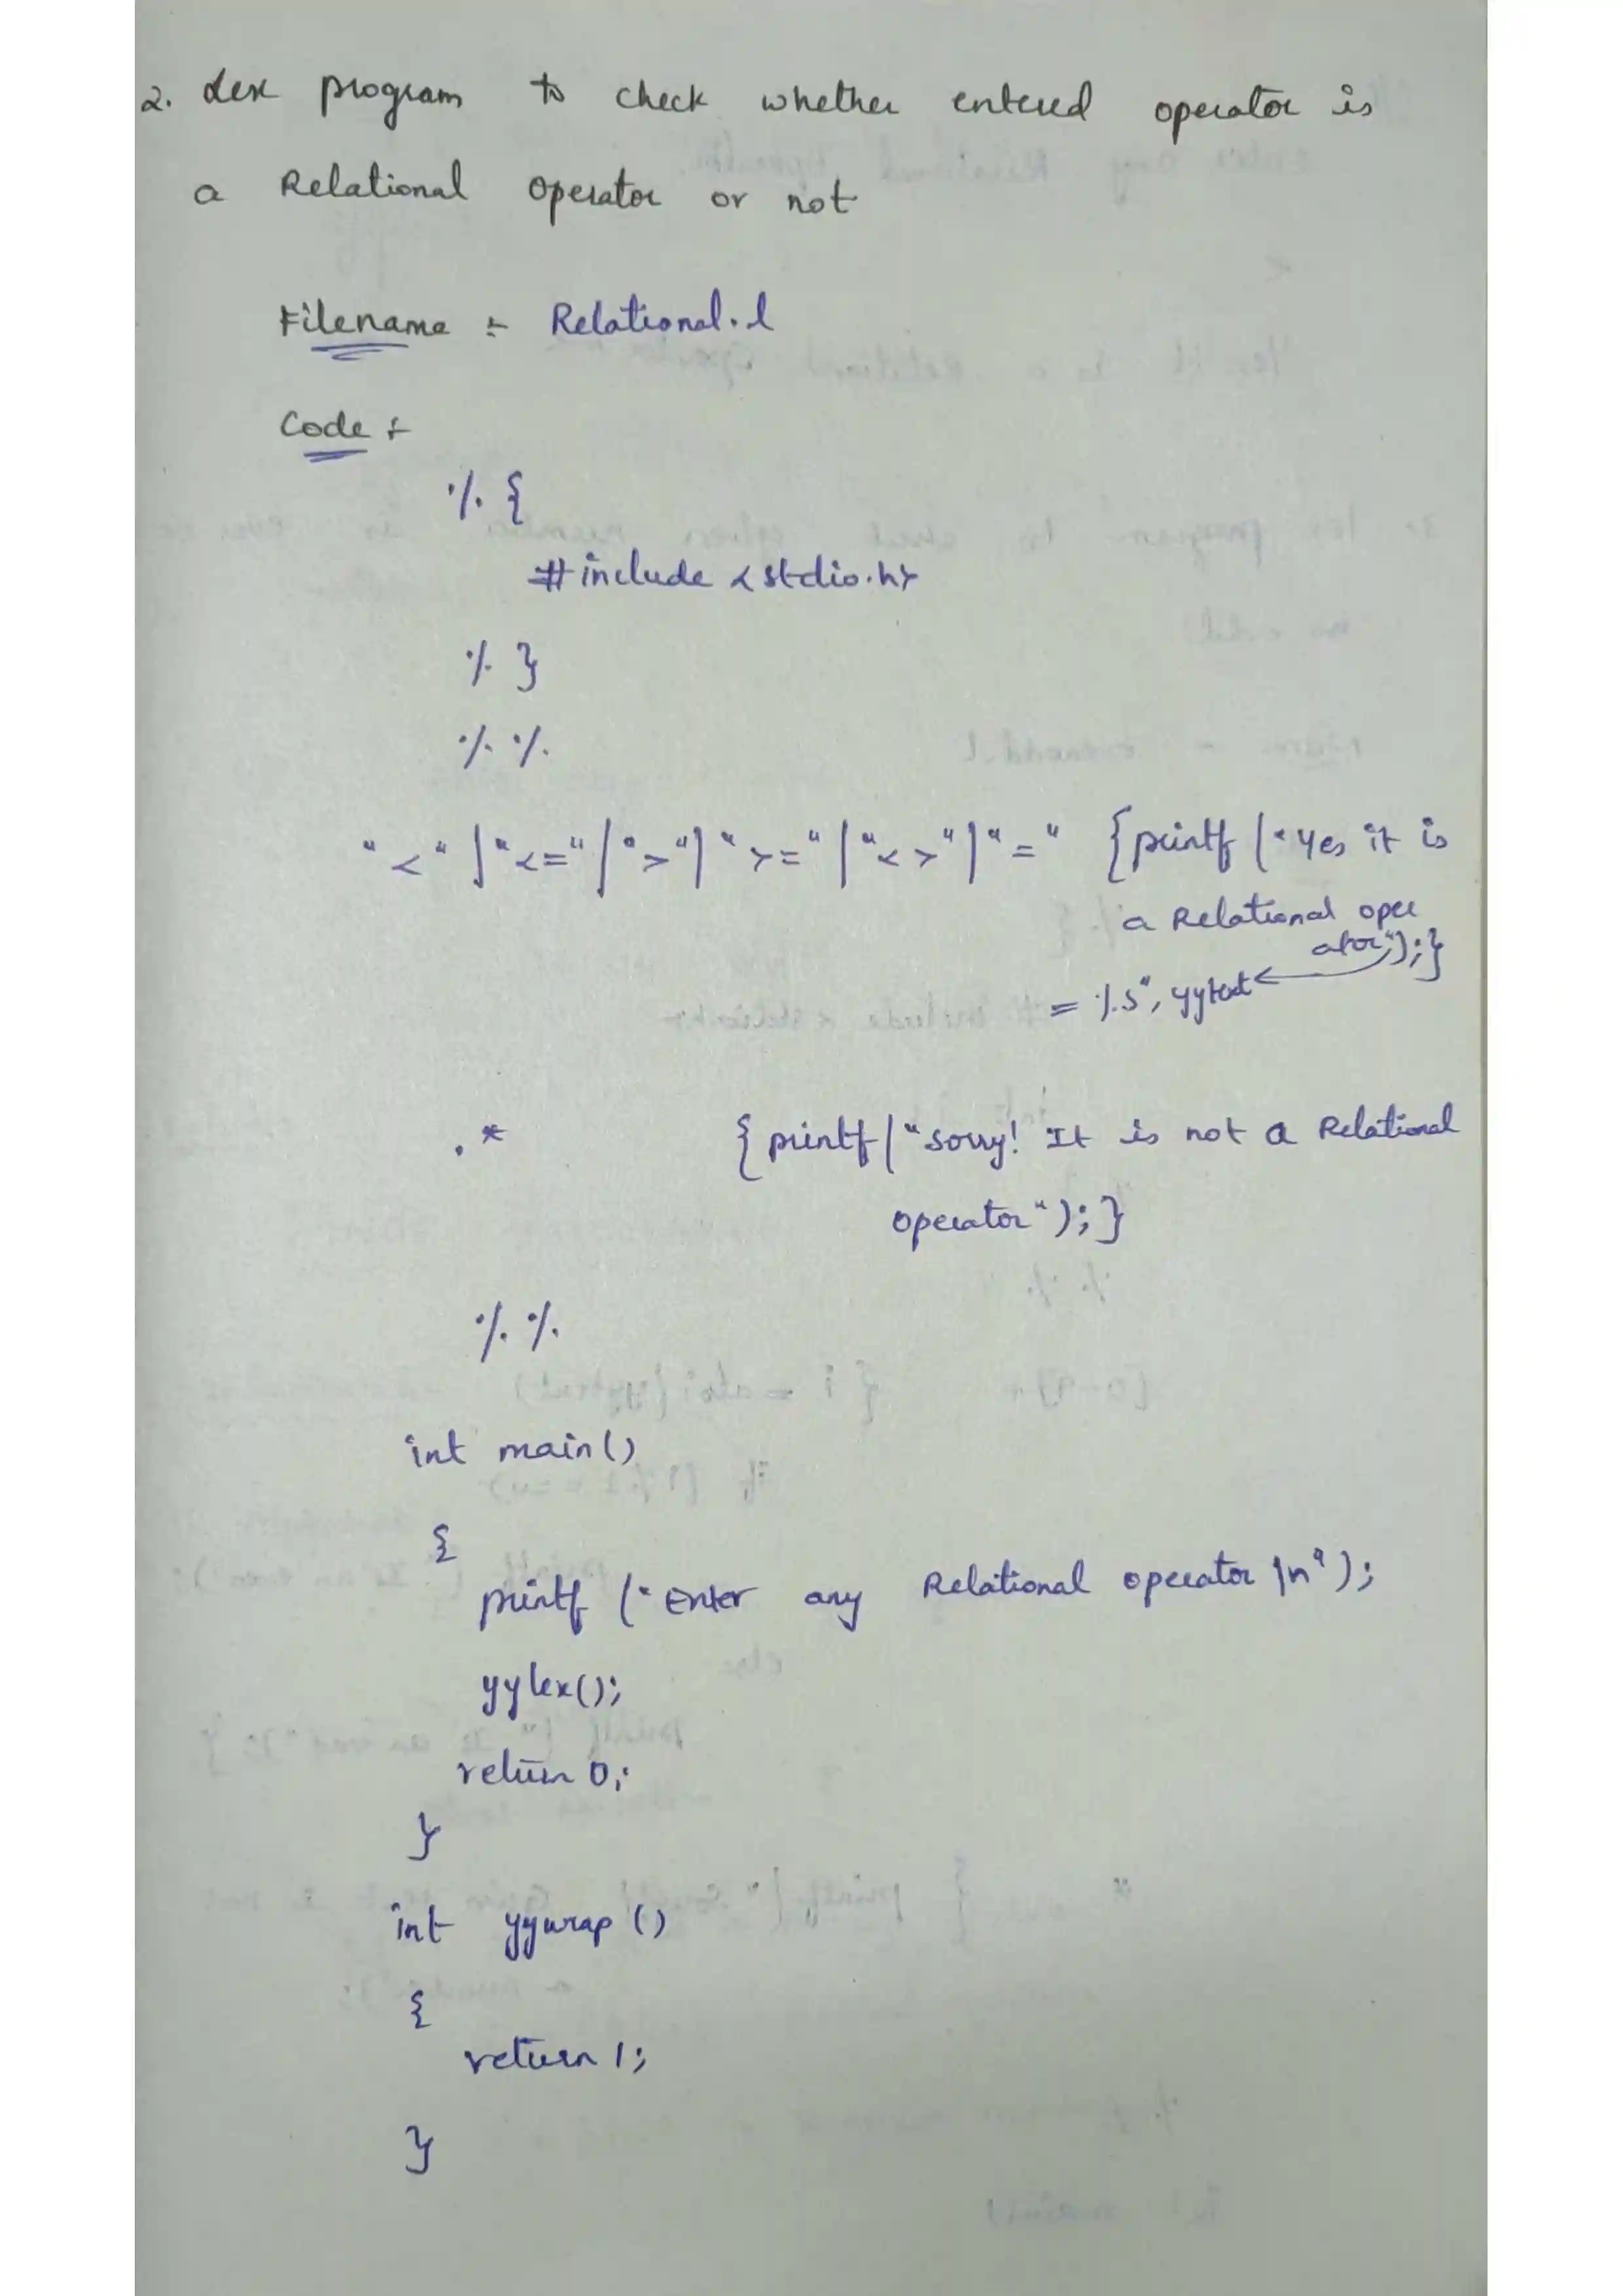 2. Lex program to check whether entered operator is
a Relational operator or not
Filename :- Relational.l
Code :-
%{
#include <stdio.h>
%}
%%
"<"|"<="|">"|">="|"<>"|"=" {printf("Yes it is
a Relational oper
ator");}
= %s", yytext
.* {printf("sorry! It is not a Relational
operator");}
%%
int main()
{
printf ("Enter any Relational operator \n");
yylex();
return 0;
}
int yywrap ()
{
return 1;
}